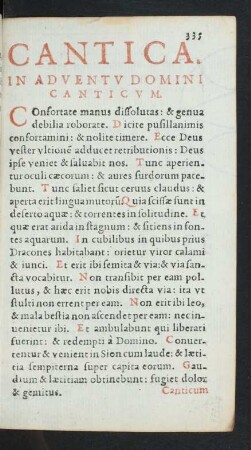 335
CANTICA.
IN ADVENTV DOMINI
CANTICVM.
COnfortate manus dissolutas: & genua
debilia roborate. Dicite pusillanimis
confortamini: & nolite timere. Ecce Deus
vester vltionē adducet retributionis: Deus
ipse veniet & saluabit nos. Tunc aperien-
tur oculi cæcorum: & aures surdorum pate-
bunt. Tunc saliet sicut ceruus claudus: &
aperta erit lingua mutorū. Quia scissæ sunt in
deserto aquæ: & torrentes in solitudine. Et
quæ erat arida in stagnum: & sitiens in fon-
tes aquarum. In cubilibus in quibus prius
Dracones habitabant: orietur viror calami
& iunci. Et erit ibi semita & via: & via san-
cta vocabitur. Non transibit per eam pol-
lutus, & hæc erit nobis directa via: ita vt
stulti non errent per eam. Non erit ibi leo,
& mala bestia non ascendet per eam: nec in-
uenietur ibi. Et ambulabunt qui liberati
fuerint: & redempti à Domino. Conuer-
tentur & venient in Sion cum laude: & læti-
tia sempiterna super capita eorum. Gau-
dium & lætitiam obtinebunt: fugiet dolor
& gemitus. Canticum